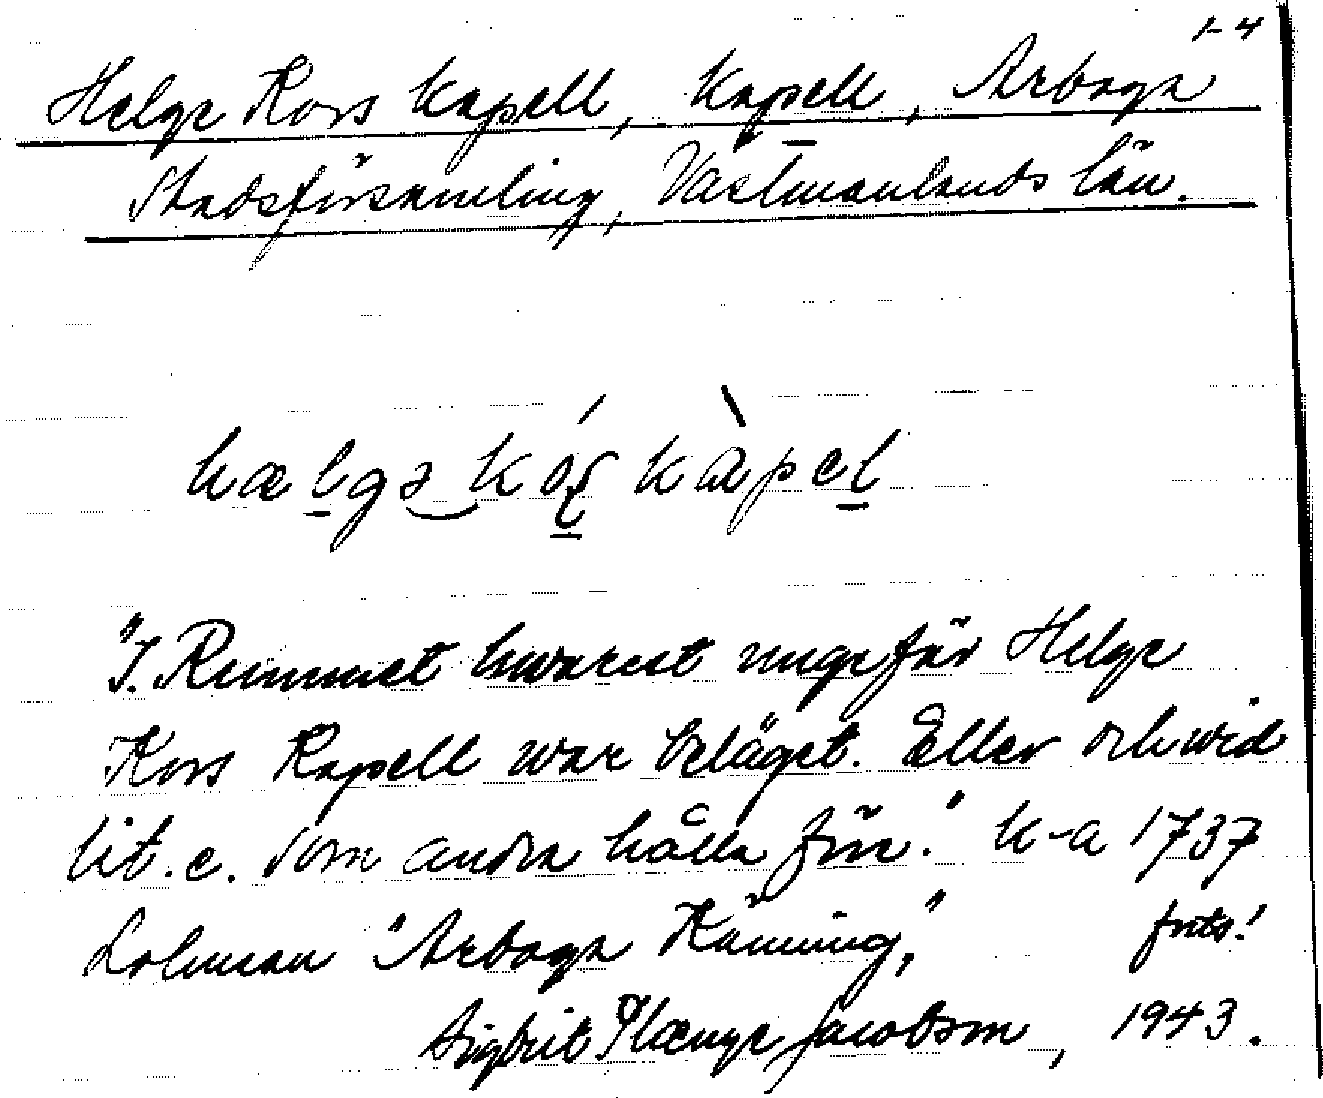 1-4
Helge Kors kapell, kapell, Arboga
Stadsförsamling, Västmanlands län.
hælgə kóʂ kàpel
"I. Rummet hwarest ungefär Helge
Kors Kapell war beläget. Eller ock wid
lit. e. som andra hålla före." k-a 1737
Lohman "Arboga Känning," forts!
Sigbrit Plænge Jacobson, 1943.